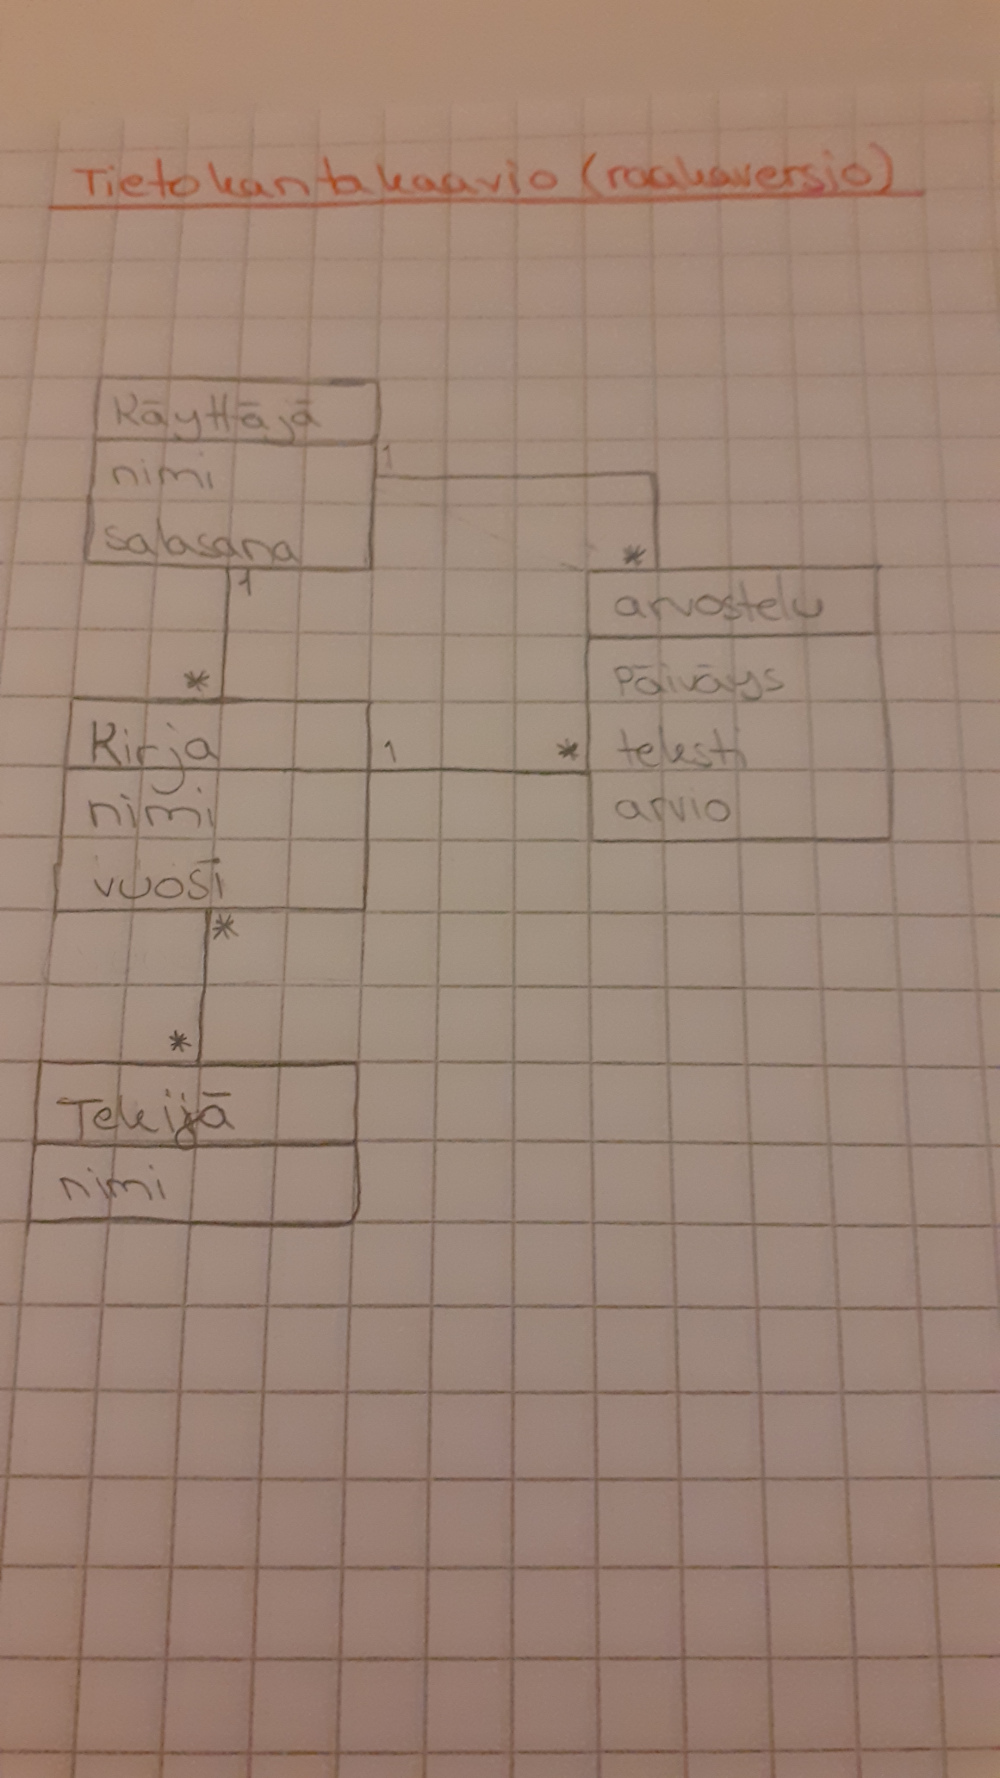 Tietokantakaavio (raakaversio)
Käyttäjä
nimi
salasana
1
1
*
*
arvostelu
Päiväys
teksti
arvio
Kirja
nimi
vuosi
1
*
*
*
Tekijä
nimi